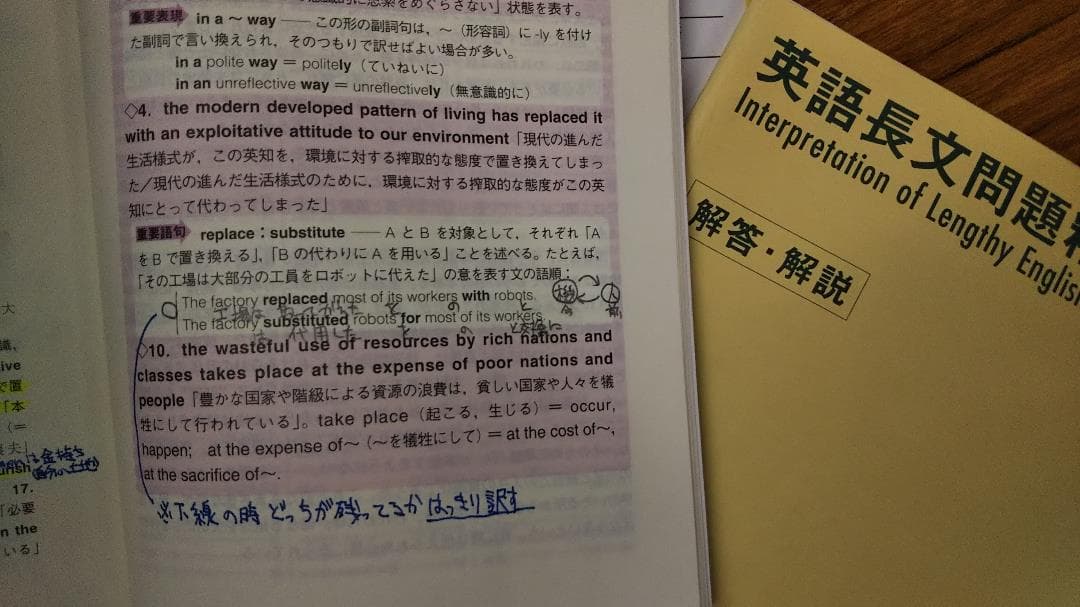 重要表現 in a ～ way —— この形の副詞句は，～（形容詞）に -ly を付け
た副詞で言い換えられ，そのつもりで訳せばよい場合が多い。
in a polite way = politely（ていねいに）
in an unreflective way = unreflectively（無意識的に）
◇4. the modern developed pattern of living has replaced it
with an exploitative attitude to our environment「現代の進んだ
生活様式が，この英知を，環境に対する搾取的な態度で置き換えてしまっ
た／現代の進んだ生活様式のために，環境に対する搾取的な態度がこの英
知にとって代わってしまった」
重要語句 replace : substitute —— A と B を対象として，それぞれ「A
を B で置き換える」，「B の代わりに A を用いる」ことを述べる。たとえば，
「その工場は大部分の工員をロボットに代えた」の意を表す文の語順：
The factory replaced most of its workers with robots.
The factory substituted robots for most of its workers.
◇10. the wasteful use of resources by rich nations and
classes takes place at the expense of poor nations and
people「豊かな国家や階級による資源の浪費は，貧しい国家や人々を犠
牲にして行われている」。take place（起こる，生じる）= occur,
happen; at the expense of～（～を犠牲にして）= at the cost of～,
at the sacrifice of～.
※下線の時 どっちが残ってるか はっきり訳す
大
識，
ive
で置
「本
（=
農夫」
は金持ち
17.
「必要
n the
いる」
英語長文問題精
Interpretation of Lengthy English
解答・解説